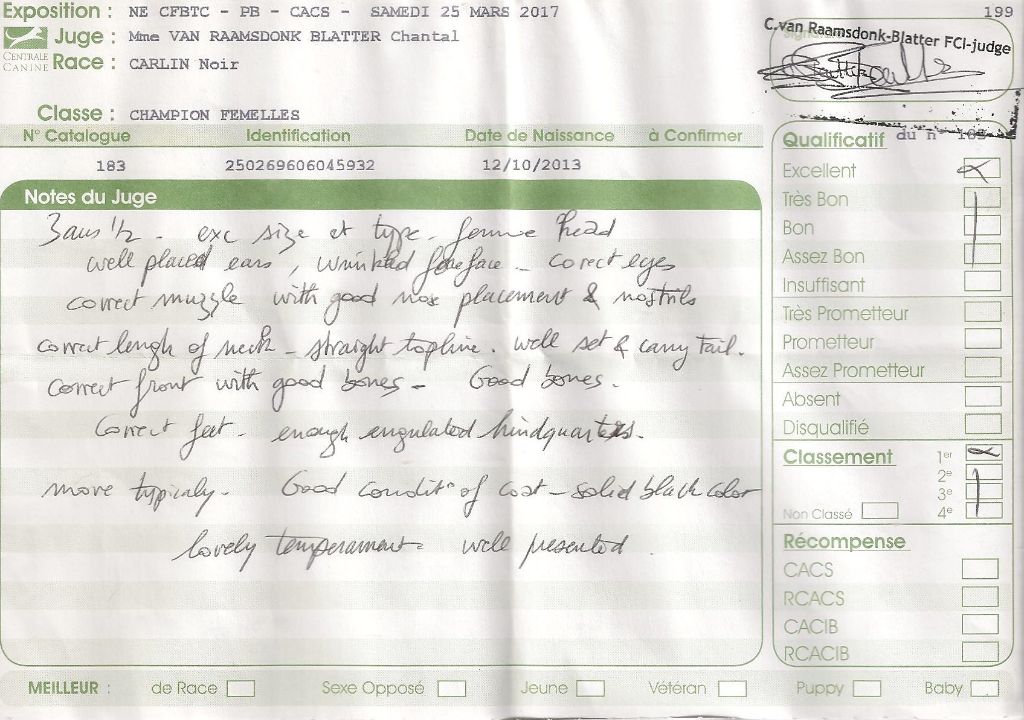 Exposition : NE CFBTC - PB - CACS - SAMEDI 25 MARS 2017
199
Juge : Mme VAN RAAMSDONK BLATTER Chantal
C.van Raamsdonk-Blatter FCI-judge
CENTRALE CANINE
Race : CARLIN Noir
Classe : CHAMPION FEMELLES
N° Catalogue Identification Date de Naissance à Confirmer
183 250269606045932 12/10/2013
Notes du Juge
3ans 1/2 - exc size et type - femme head
well placed ears, wrinkled foreface - corect eyes
correct muzzle with good nose placement & nostrils
correct lengh of neck - straight topline. well set & carry tail.
correct front with good bones - Good bones.
Correct feet - enough engulated hindquarters.
move typicaly - Good condit° of coat - solid black color
lovely temperament - well presented.
Qualificatif du n° 183
Excellent
Très Bon
Bon
Assez Bon
Insuffisant
Très Prometteur
Prometteur
Assez Prometteur
Absent
Disqualifié
Classement
1er
2e
3e
Non Classé 4e
Récompense
CACS
RCACS
CACIB
RCACIB
MEILLEUR : de Race Sexe Opposé Jeune Vétéran Puppy Baby